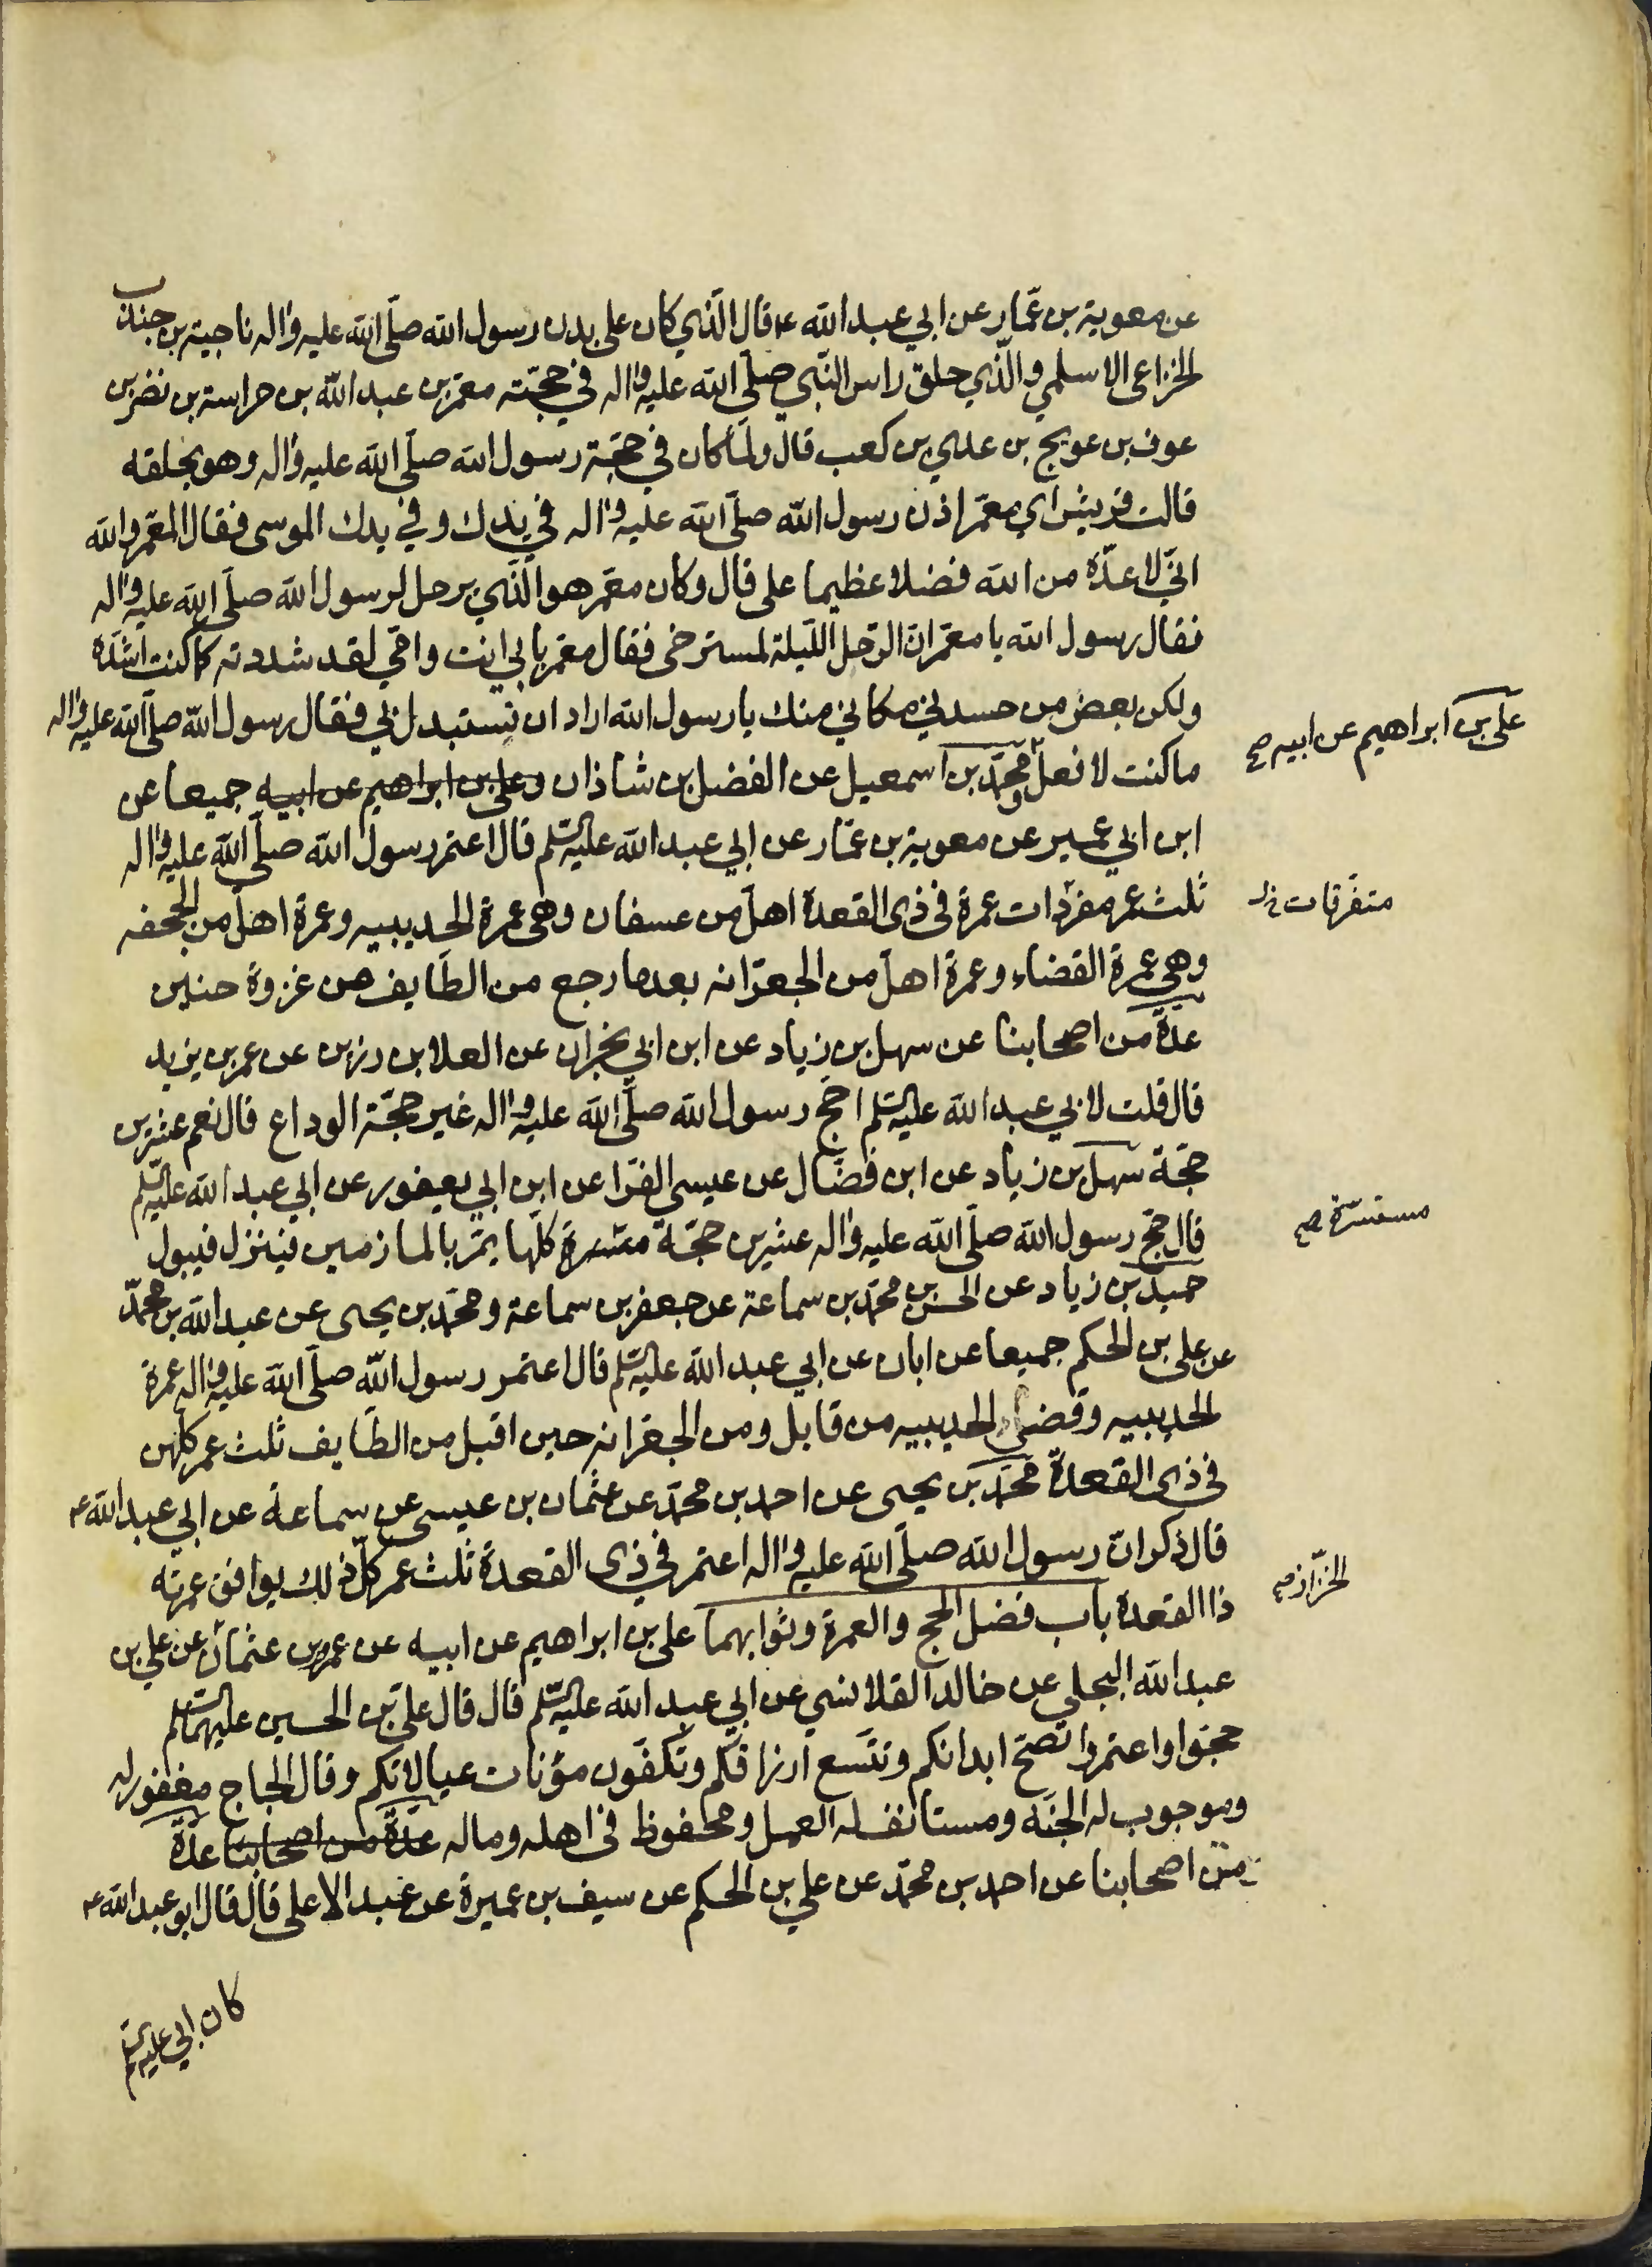 عن معوية بن عمّار عن ابي عبد الله ع قال الّذي كان على بدن رسول الله صلّى الله عليه واله ناجية بن جندب
الخزاعى الاسلمي والّذي حلق راس النّبي صلّى الله عليه واله في حجّته معمّر بن عبد الله بن حراسة بن نضر بن
عوف بن عويج بن عدي بن كعب قال ولمّا كان في حجّة رسول الله صلّى الله عليه واله وهو يحلقه
قالت قريش اي معمّر اذن رسول الله صلّى الله عليه واله في يدك وفي يدك الموسى فقال المعمّر والله
انّي لاعدّه من الله فضلا عظيما على قال وكان معمّر هو الّذي يرحل لرسول الله صلّى الله عليه واله
فقال رسول الله يا معمّر انّ الرّحل اللّيلة لمسترخى فقال معمّر بابي انت وامّي لقد شددته كما كنت اشدّه
ولكن بعض من حسدني مكاني منك يا رسول الله اراد ان تستبدل بي فقال رسول الله صلّى الله عليه واله
علي بن ابراهيم عن ابيه صح
ما كنت لافعل ومحمّد بن اسمعيل عن الفضل بن شاذان وعلى بن ابراهيم عن ابيه جميعا عن
ابن ابي عمير عن معوية بن عمّار عن ابي عبد الله عليه السّلم قال اعتمر رسول الله صلّى الله عليه واله
ثلث عمر مفردات عمرة فى ذى القعدة اهلّ من عسفان وهى عمرة الحديبيه وعمرة اهلّ من الجحفه
متفرّقات خ ل
وهي عمرة القضاء وعمرة اهلّ من الجعرّانه بعد ما رجع من الطّايف من غزوة حنين
عدّة من اصحابنا عن سهل بن زياد عن ابن ابي نجران عن العلا بن رزين عن عمر بن يزيد
قال قلت لابي عبد الله عليه السّلم احجّ رسول الله صلّى الله عليه واله غير حجّة الوداع قال نعم عشرين
حجّة سهل بن زياد عن ابن فضّال عن عيسى الفرّا عن ابن ابي يعفور عن ابي عبد الله عليه السّلم
قال حجّ رسول الله صلّى الله عليه واله عشرين حجّة مستسرة كلّها يمرّ بالمازمين فينزل فيبول
مستسرّة صح
حميد بن زياد عن الحسن بن محمّد بن سماعة عن جعفر بن سماعة ومحمّد بن يحيى عن عبد الله بن محمّد
عن على بن الحكم جميعا عن ابان عن ابي عبد الله عليه السّلم قال اعتمر رسول الله صلّى الله عليه واله عمرة
الحديبيه وقضى الحديبيه من قابل ومن الجعرّانه حين اقبل من الطّايف ثلث عمر كلّهن
فى ذى القعدة محمّد بن يحيى عن احمد بن محمّد عن عثمان بن عيسى عن سماعة عن ابي عبد الله ع
قال ذكر انّ رسول الله صلّى الله عليه واله اعتمر في ذى القعدة ثلث عمر كلّ ذلك يوافق عمرته
ذا القعدة باب فضل الحج والعمرة وثوابهما على بن ابراهيم عن ابيه عن عمرو بن عثمان عن علي بن
الخزّاز صح
عبد الله البجلي عن خالد القلانسي عن ابي عبد الله عليه السّلم قال قال علىّ بن الحسين عليهما السّلم
حجّوا واعتمروا تصحّ ابدانكم وتتّسع ارزاقكم وتكفّون مؤنات عيالاتكم وقال الحاج مغفور له
وموجوب له الجنّة ومستانف له العمل ومحفوظ فى اهله وماله عدّة من اصحابنا عدّة
من اصحابنا عن احمد بن محمّد عن علي بن الحكم عن سيف بن عميرة عن عبد الاعلى قال قال ابو عبد الله ع
كان ابي عليه السّلم